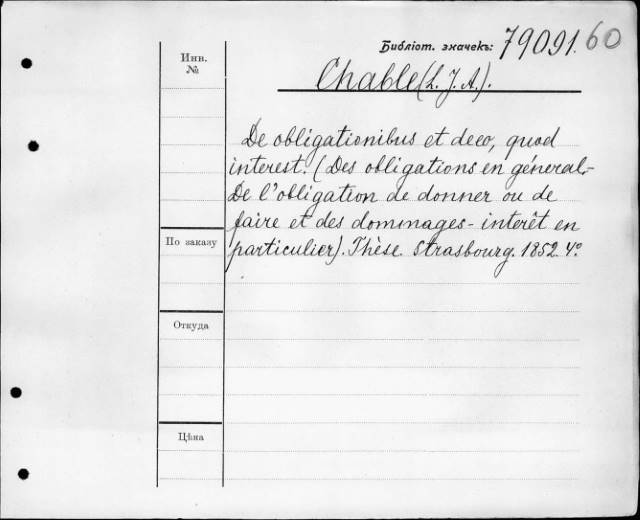 Библіот. значекъ: 79091.60
Инв. №
Chable (L. J. A.).
De obligationibus et deeo, quod
interest. (Des obligations en géneral.-
De l'obligation de donner ou de
faire et des dommages-interêt en
particulier). Thèse. Strasbourg. 1852. 4º
По заказу
Откуда
Цѣна